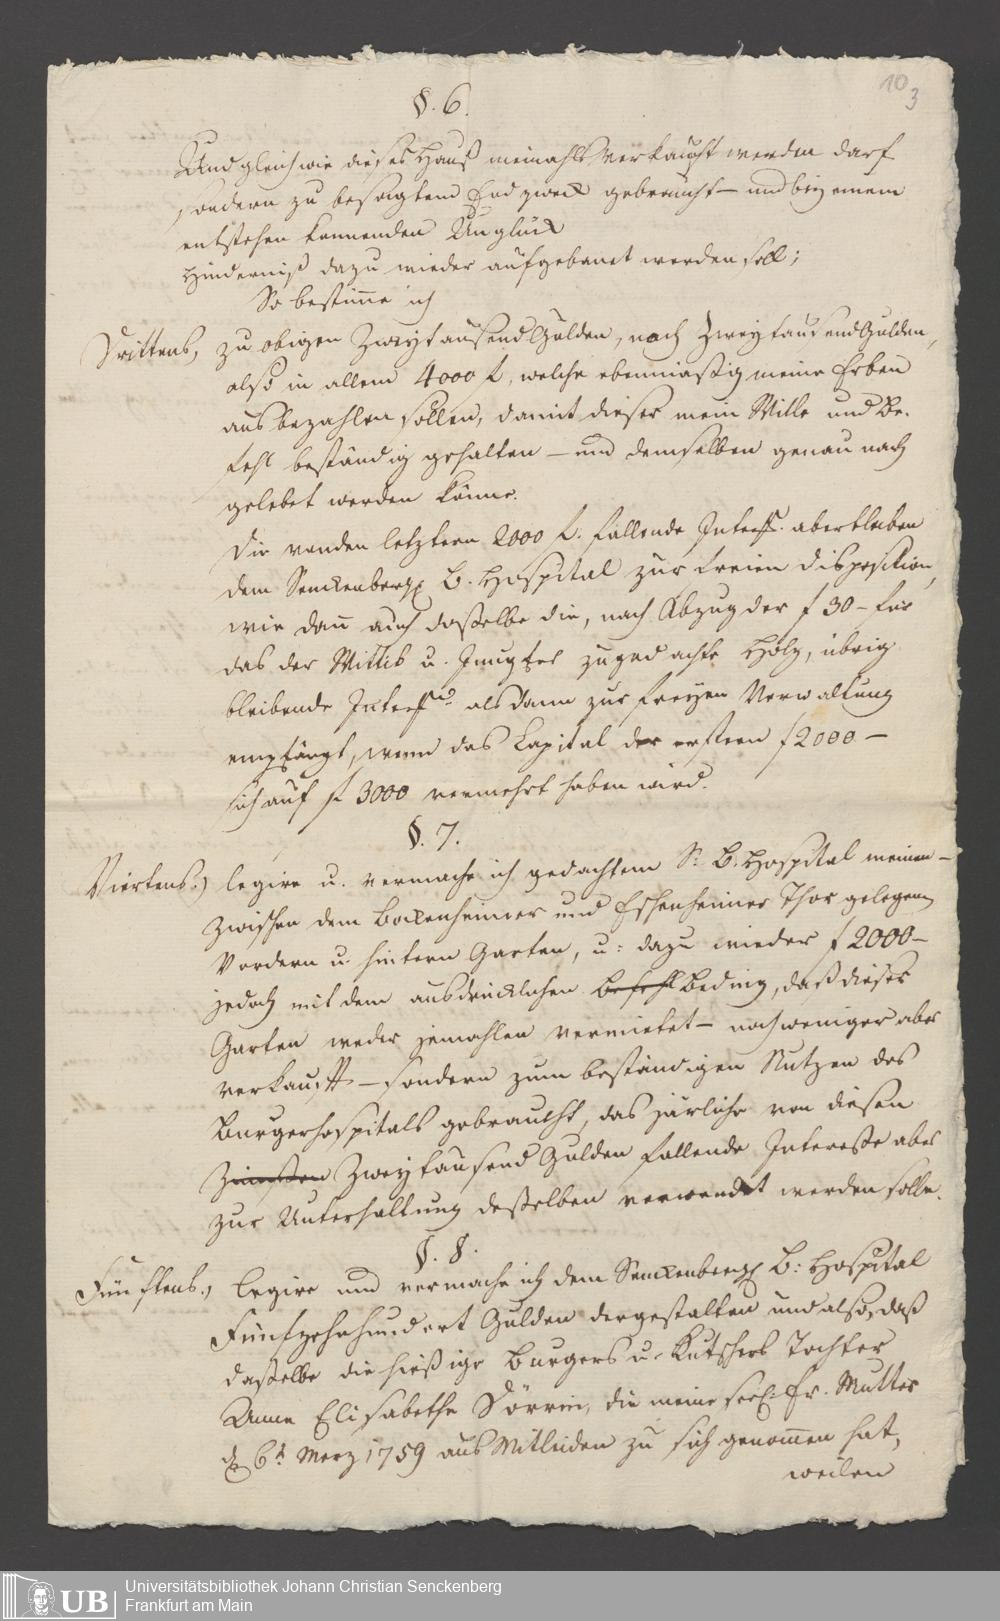 10
3
§. 6.
Und gleichwie dieses Hauß niemahls verkaufft werden darf
sondern zu besagtem Endzweck gebraucht – und bey einem
entstehen kennenden Unglück
Hinderniß dazu wieder aufgebauet werden soll;
So bestimme ich
Drittens, zu obigen Zweytausend Gulden, noch Zweytausend Gulden,
also in allem 4000 f, welche ebenmäßig meine Erben
ausbezahlen sollen, damit dieser mein Wille und Be-
fehl beständig gehalten – und demselben genau nach
gelebet werden könne.
Die von den letztern 2000 f. fallende Interess. aber bleiben
dem Senckenberg. B. Hospital zur freien disposition,
wie dann auch dasselbe die, nach Abzug der f 30 – für
das der Wittib u. Jungfer zugedachte Holz, übrig
bleibende Interess. alsdann zur freyen Verwaltung
empfängt, wenn das Capital der erstern f 2000 –
sich auf f 3000 vermehrt haben wird.
§. 7.
Viertens.) legire u. vermache ich gedachtem S. B. Hospital meinen –
zwischen dem Bockenheimer und Eschenheimer Thor gelegenen
Vordern u. hintern Garten, u: dazu wieder f 2000 –
jedoch mit dem ausdrücklichen Befehl Beding, daß dieser
Garten weder jemahlen vermietet – noch weniger aber
verkaufft – sondern zum beständigen Nutzen des
Burgerhospitals gebraucht, das järliche von diesen
Zweytausend Gulden fallende Interesse aber
zur Unterhaltung desselben verwendet werden solle.
§. 8.
Fünftens.) legire und vermache ich dem Senckenberg. B: Hospital
Fünfzehnhundert Gulden dergestalten und also, daß
dasselbe die hießige Burgers u. Kutschers Tochter
Anna Elisabetha Dörrin, die meine seel: Fr. Mutter
d. 6t. Merz 1759 aus Mitleiden zu sich genommen hat,
weilen
UB
Universitätsbibliothek Johann Christian Senckenberg
Frankfurt am Main